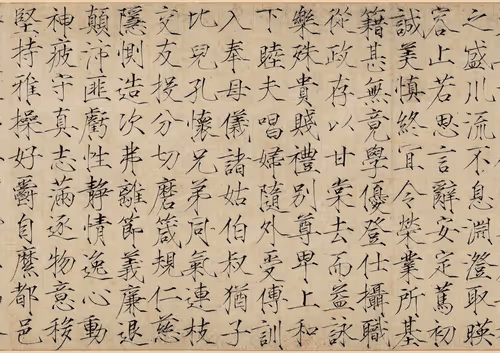 之盛川流不息淵澄取暎
容止若思言辭安定篤初
誠美慎終宜令榮業所基
籍甚無竟學優登仕攝職
從政存以甘棠去而益詠
樂殊貴賤禮別尊卑上和
下睦夫唱婦隨外受傅訓
入奉母儀諸姑伯叔猶子
比兒孔懷兄弟同氣連枝
交友投分切磨箴規仁慈
隱惻造次弗離節義廉退
顛沛匪虧性静情逸心動
神疲守真志滿逐物意移
堅持雅操好爵自縻都邑